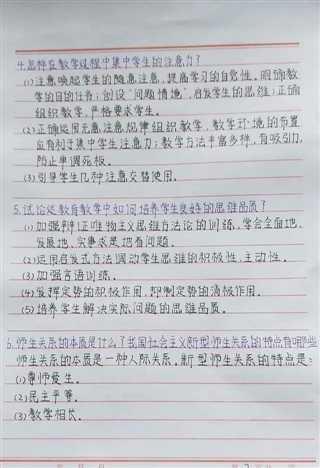 4.怎样在教学过程中集中学生的注意力？
(1)注意唤起学生的随意注意，提高学习的自觉性。明确教
学的目的任务；创设“问题情境”，启发学生的思维；正确
组织教学，严格要求学生。
(2)正确运用无意注意规律组织教学，教学环境的布置
应有利于集中学生注意力；教学方法丰富多样，有吸引力，
防止单调死板。
(3)引导学生几种注意交替使用。
5.试论述教育教学中如何培养学生良好的思维品质？
(1)加强辩证唯物主义思维方法论的训练，学会全面地、
发展地、实事求是地看问题。
(2)运用启发式方法调动学生思维的积极性、主动性。
(3)加强言语训练。
(4)发挥定势的积极作用，抑制定势的消极作用。
(5)培养学生解决实际问题的思维品质。
6.师生关系的本质是什么？我国社会主义新型师生关系的特点有哪些
师生关系的本质是一种人际关系。新型师生关系的特点是：
(1)尊师爱生。
(2)民主平等。
(3)教学相长。